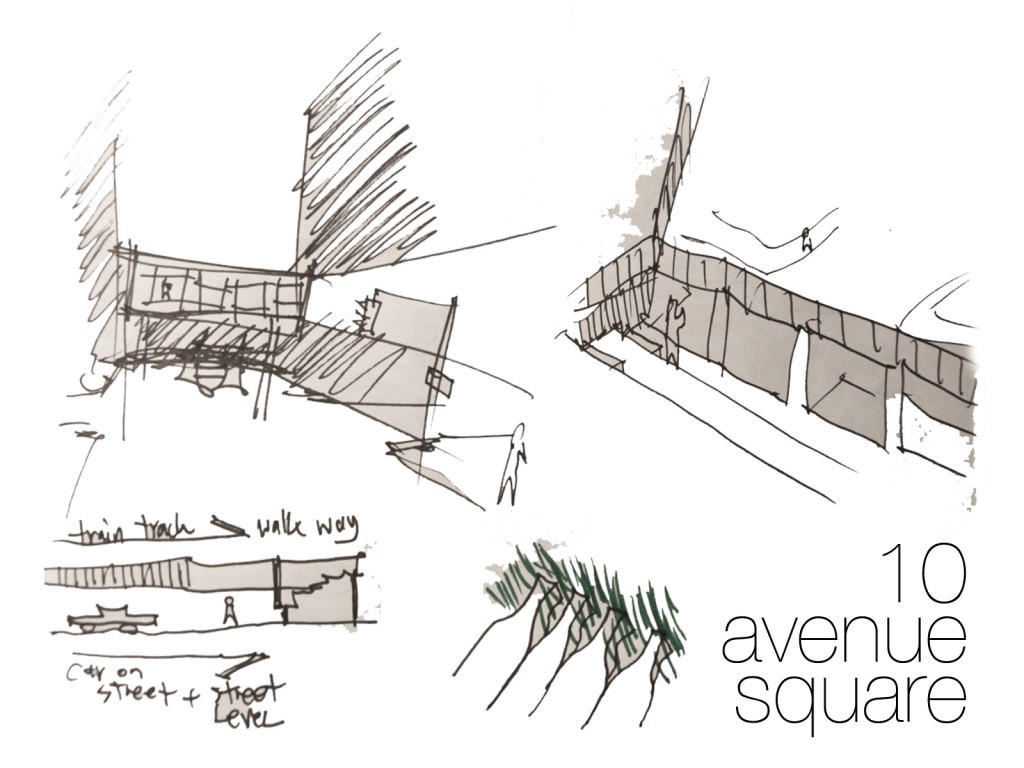 train track walk way
car on
street + street
level
10
avenue
square